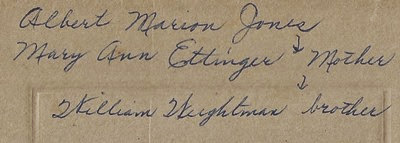 Albert Marion Jones
Mary Ann Ettinger → Mother
William Weightman brother